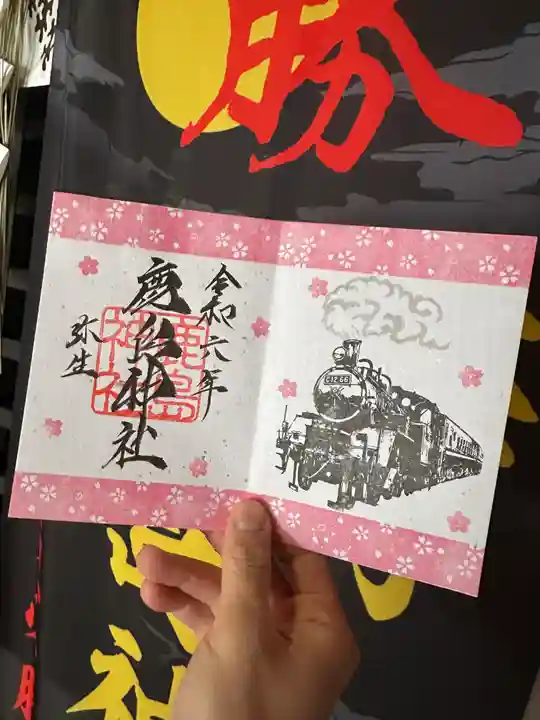 勝
令和六年
鹿島神社
鹿島
神社
弥生
C12 66
社
月